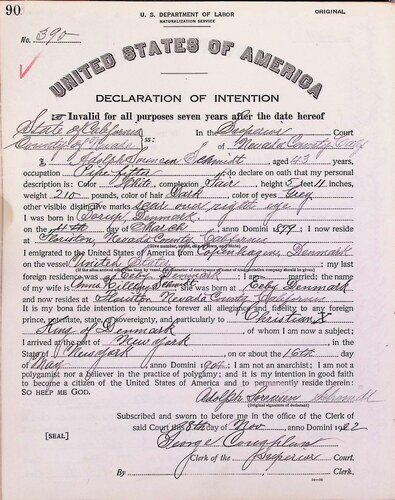 90
U. S. DEPARTMENT OF LABOR
NATURALIZATION SERVICE
ORIGINAL
No. 390
UNITED STATES OF AMERICA
DECLARATION OF INTENTION
Invalid for all purposes seven years after the date hereof
State of California
County of Nevada ss: In the Superior Court of Nevada County
I, Adolph Sorensen Schmidt, aged 43 years,
occupation Pipe fitter, do declare on oath that my personal
description is: Color White, complexion Fair, height 5 feet 11 inches,
weight 210 pounds, color of hair Dark, color of eyes Grey
other visible distinctive marks scar over right eye
I was born in Denmark
on the 4th day of March, anno Domini 1879; I now reside
at Nevada County, California
I emigrated to the United States of America from Copenhagen, Denmark
on the vessel United States; my last
foreign residence was Denmark; I am married; the name
of my wife is Anna Schmidt; she was born at Denmark
and now resides at Nevada County California
It is my bona fide intention to renounce forever all allegiance and fidelity to any foreign
prince, potentate, state, or sovereignty, and particularly to Christian X
King of Denmark, of whom I am now a subject;
I arrived at the port of New York, in the
State of New York, on or about the 16th day
of May, anno Domini; I am not an anarchist; I am not a
polygamist nor a believer in the practice of polygamy; and it is my intention in good faith
to become a citizen of the United States of America and to permanently reside therein:
SO HELP ME GOD.
Adolph Sorensen Schmidt
(Original signature of declarant)
Subscribed and sworn to before me in the office of the Clerk of
said Court this 28th day of Nov, anno Domini 1922
[SEAL]
George
Clerk of the Superior Court.
By, Clerk.